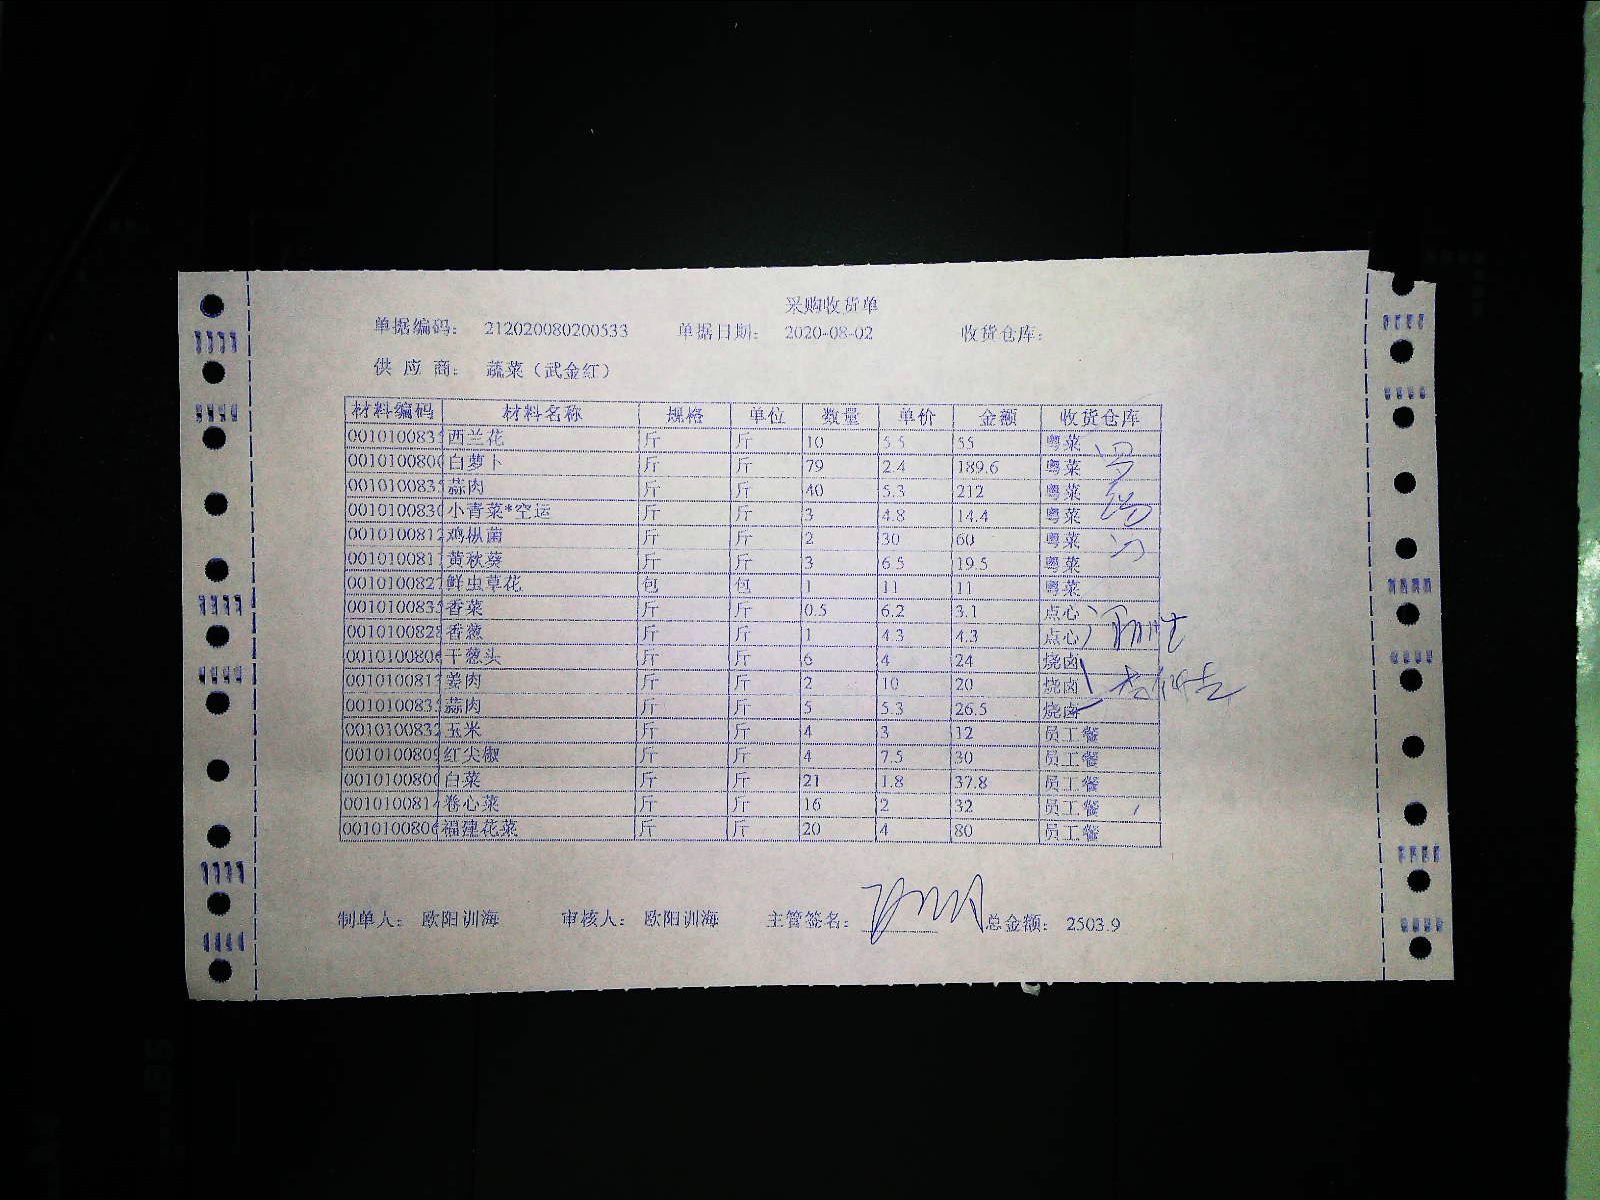 采购收货单
单据编码： 212020080200533 单据日期： 2020-08-02 收货仓库：
供 应 商： 蔬菜（武金红）
材料编码 材料名称 规格 单位 数量 单价 金额 收货仓库
0010100835 西兰花 斤 斤 10 5.5 55 粤菜
0010100800 白萝卜 斤 斤 79 2.4 189.6 粤菜
0010100835 蒜肉 斤 斤 40 5.3 212 粤菜
0010100830 小青菜*空运 斤 斤 3 4.8 14.4 粤菜
0010100812 鸡枞菌 斤 斤 2 30 60 粤菜
0010100817 黄秋葵 斤 斤 3 6.5 19.5 粤菜
0010100827 鲜虫草花 包 包 1 11 11 粤菜
0010100835 香菜 斤 斤 0.5 6.2 3.1 点心
0010100828 香葱 斤 斤 1 4.3 4.3 点心
0010100806 干葱头 斤 斤 6 4 24 烧卤
0010100811 姜肉 斤 斤 2 10 20 烧卤
0010100835 蒜肉 斤 斤 5 5.3 26.5 烧卤
0010100832 玉米 斤 斤 4 3 12 员工餐
0010100809 红尖椒 斤 斤 4 7.5 30 员工餐
0010100800 白菜 斤 斤 21 1.8 37.8 员工餐
0010100814 卷心菜 斤 斤 16 2 32 员工餐
0010100806 福建花菜 斤 斤 20 4 80 员工餐
制单人： 欧阳训海 审核人： 欧阳训海 主管签名： 总金额： 2503.9